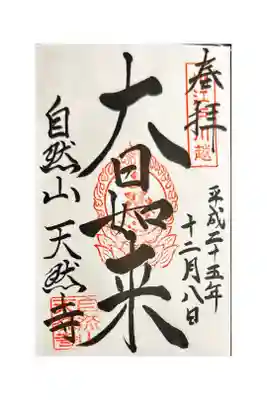 奉拝
平成二十五年
十二月八日
大日如来
自然山 天然寺